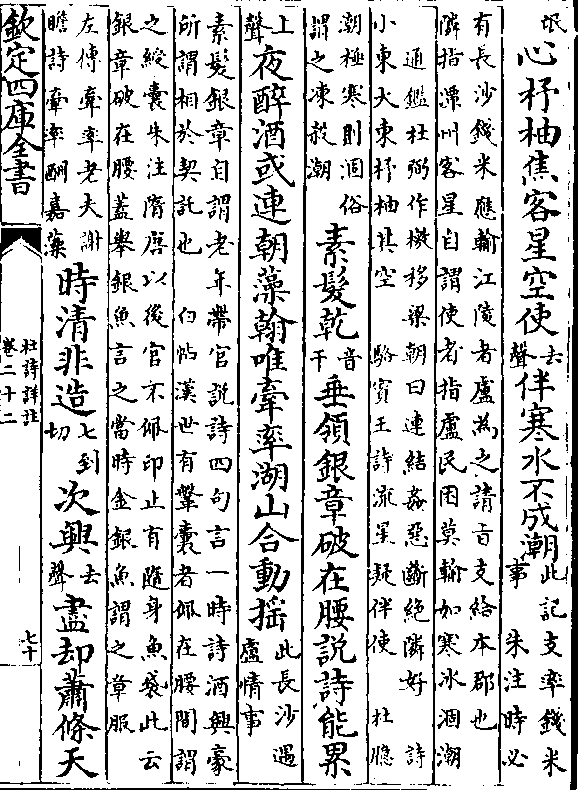 氓心杼柚焦客星空使去聲伴寒水不成潮此記支率錢米事 朱注時必
有長沙錢米應輸江陵者盧為之請旨支給本郡也
隣指潭州客星自謂使者指盧民困莫輸如寒水涸潮
通鑑杜弼作檄移梁朝曰連結姦惡斷絕隣好 詩
小東大東杼柚其空 駱賓王詩流星疑伴使 杜臆
潮極寒則涸俗謂之凍殺潮 素髮乾音干垂領銀章破在腰說詩能累
上聲夜醉酒或連朝藻翰唯牽率湖山合動搖此長沙遇盧情事
素髮銀章自謂老年帶官說詩四句言一時詩酒興豪
所謂相於契託也 白帖漢世有鞶囊者佩在腰間謂
之綬囊朱注隋唐以後官不佩印止有隨身魚袋此云
銀章破在腰蓋舉銀魚言之當時金銀魚謂之章服
左傳牽率老夫謝瞻詩牽率酬嘉藻 時清非造七到切次興去聲盡却蕭條天
欽定四庫全書
杜詩詳註
卷二十二
七十